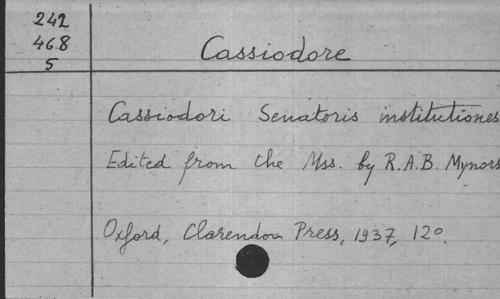 242
468
5
Cassiodore
Cassiodori Senatoris institutiones
Edited from the Mss. by R.A.B. Mynors
Oxford, Clarendon Press, 1937, 12º.